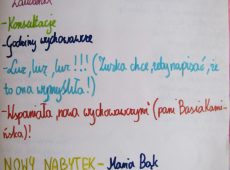 - Konsultacje
- Godziny wychowawcze
- Luz, luz, luz!!! (Zuska chce, żeby napisać, że
to ona wymyśliła!)
- Wspaniała „nowa wychowawczyni” (pani Basia Kami-
ńska)!
NOWY NABYTEK - Mania Bąk